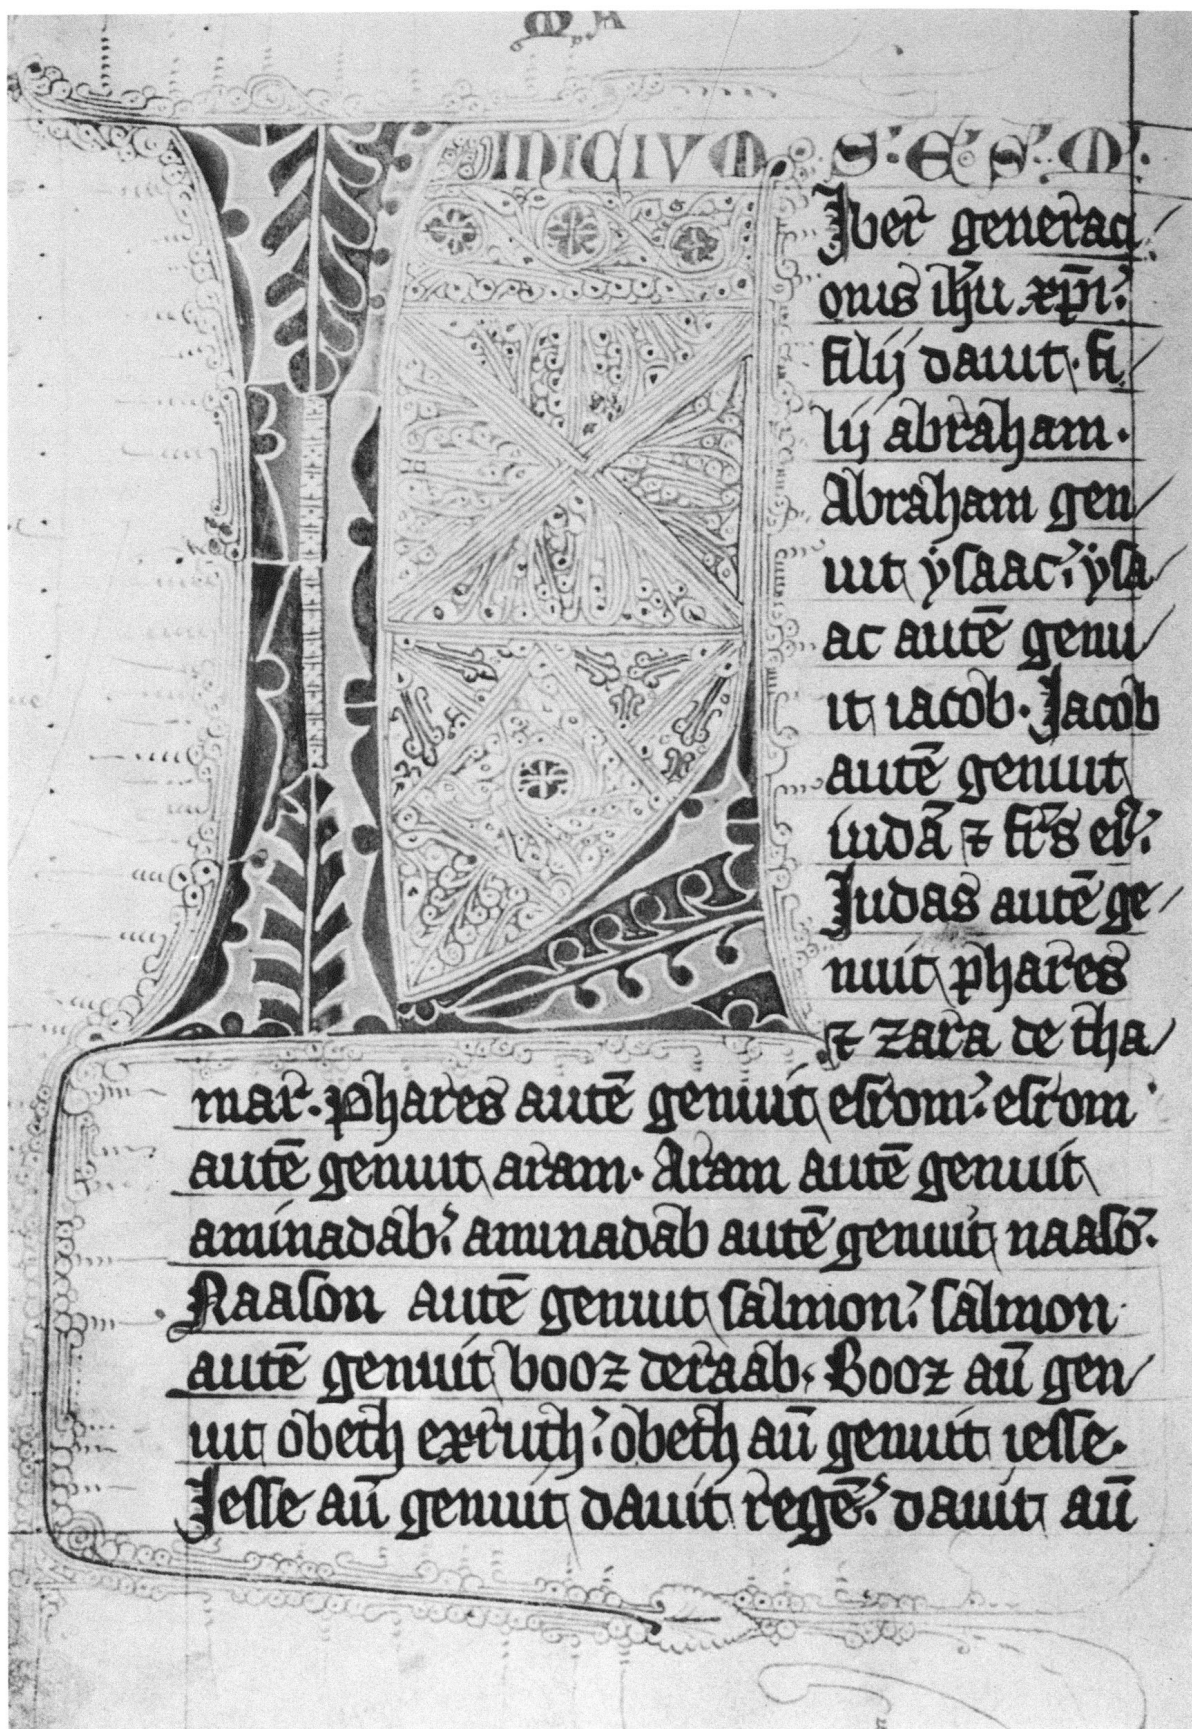 MA
INICIVM S. E. S. M.
Liber generaci
onis ihu xpi.
filij dauit. fi
lij abraham.
Abraham gen
uit ysaac. ysa
ac autē genu
it iacob. Jacob
autē genuit
iudā ⁊ frs ei9.
Judas autē ge
nuit phares
⁊ zara de tha
mar. Phares autē genuit esrom. esrom
autē genuit aram. Aram autē genuit
aminadab. aminadab autē genuit naasō.
Naason autē genuit salmon. salmon
autē genuit booz deraab. Booz aū gen
uit obeth exruth. obeth aū genuit iesse.
Jesse aū genuit dauit regē. dauit aū